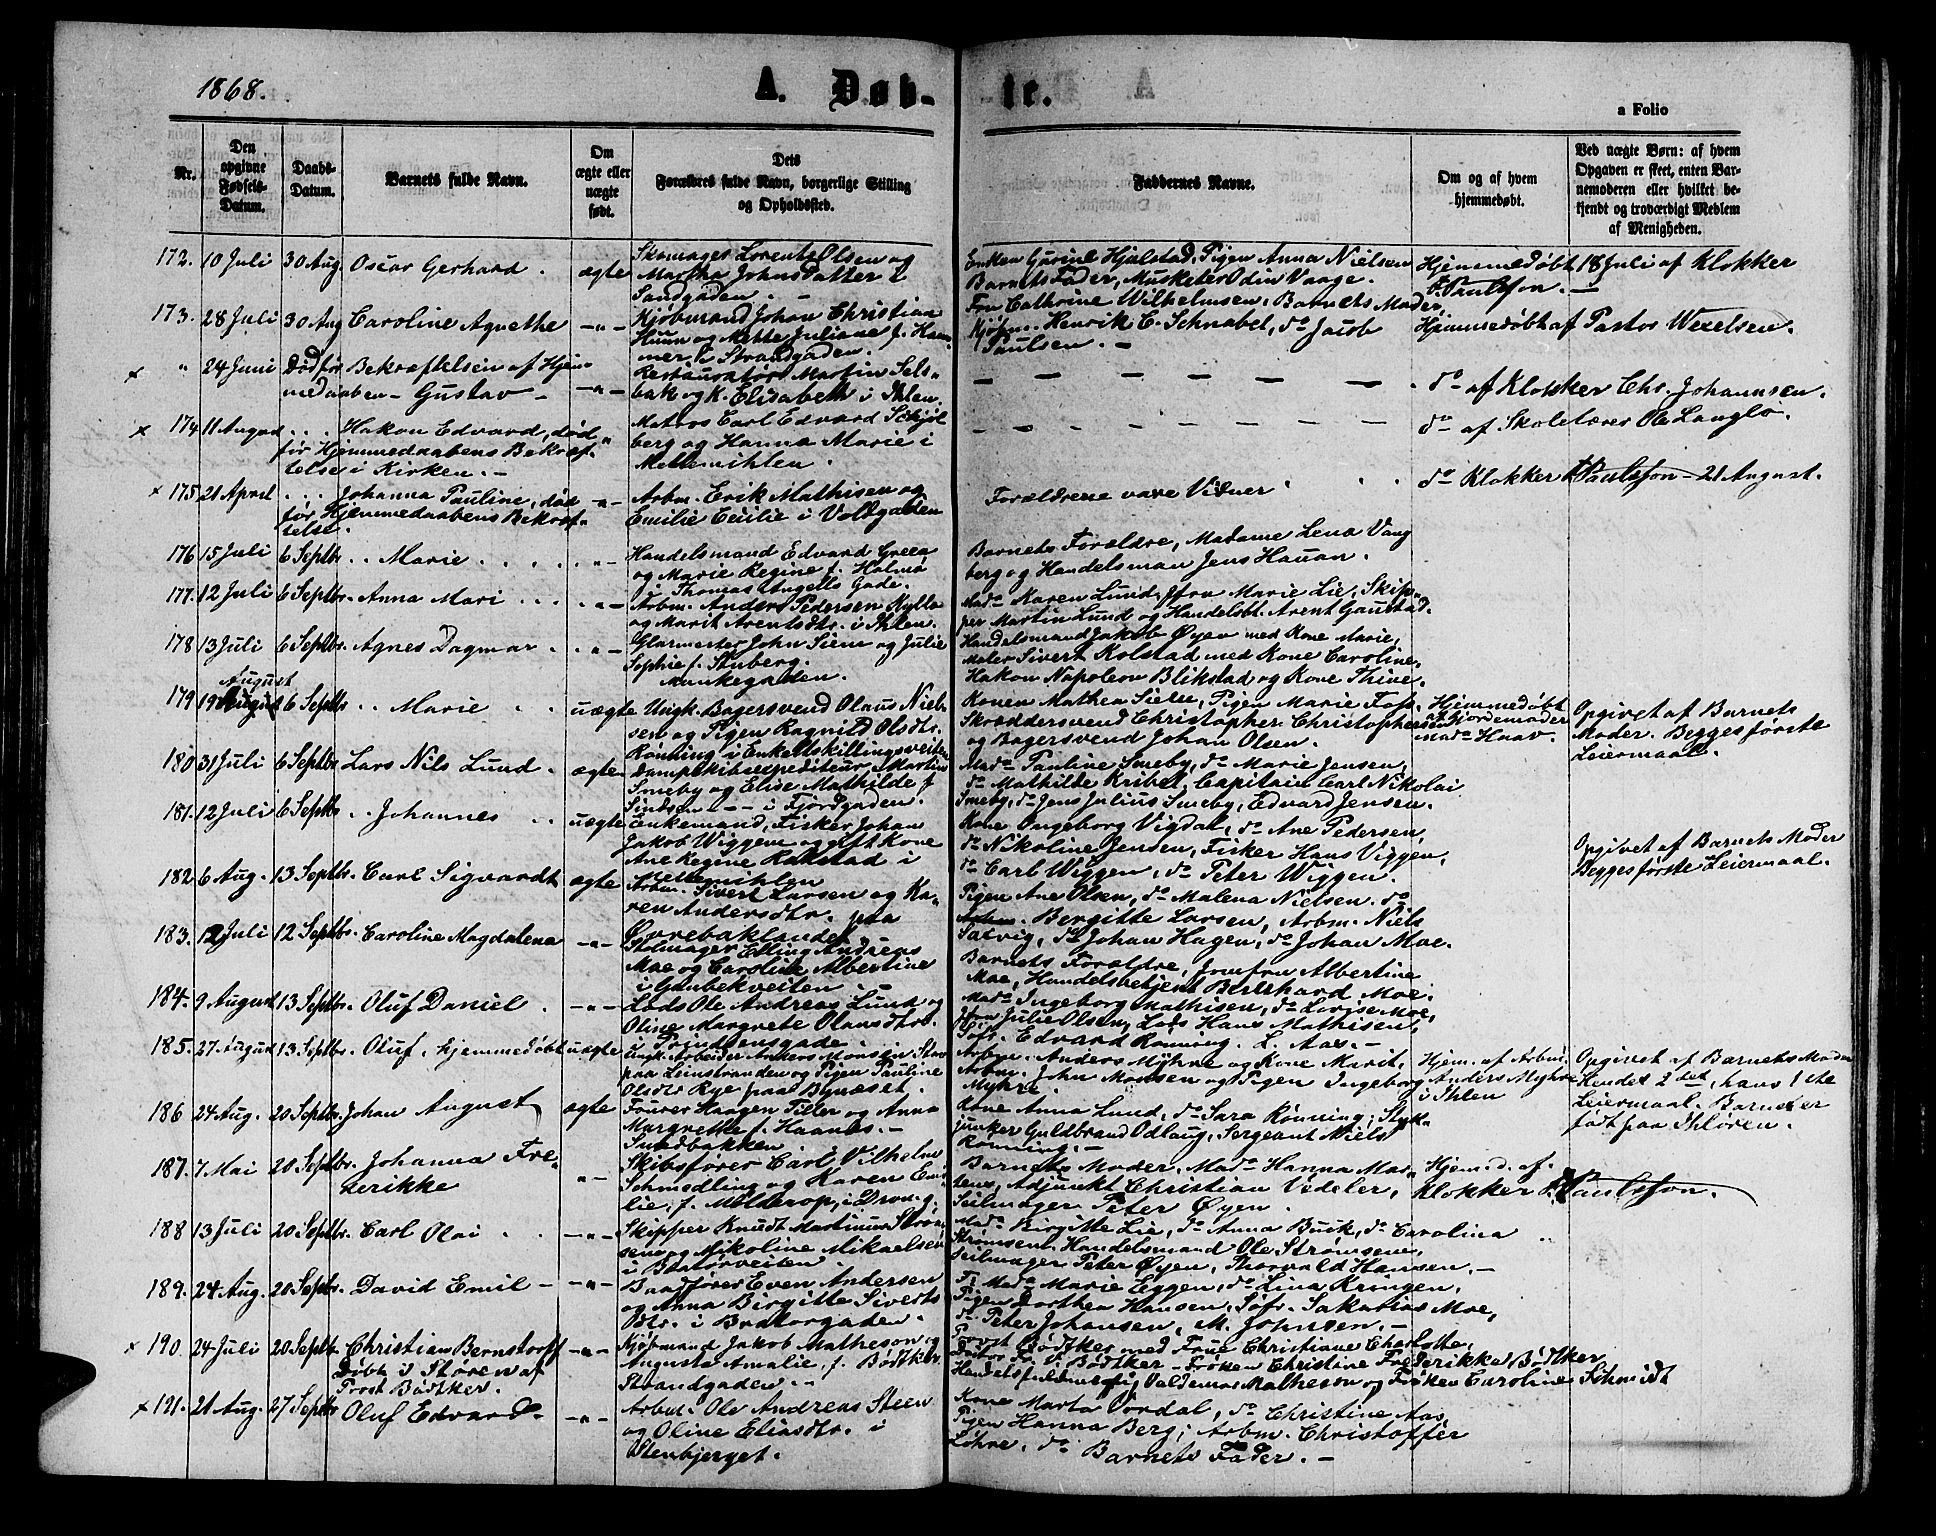 1868.
A. Døb-
te.
a Folio
Nr.
Den opgivne Fødsels-Datum.
Daabs-Datum.
Barnets fulde Navn.
Om ægte eller uægte født.
Dets Forældres fulde Navn, borgerlige Stilling og Opholdssted.
Faddernes Navne.
Om og af hvem hjemmedøbt.
Ved uægte Børn: af hvem Opgaven er skeet, enten Barnemoderen eller hvilket bekjendt og troværdigt Medlem af Menigheden.
172. 10 Juli 30 Aug. Oscar Gerhard. ægte
Skomager Lorents Olsen og
Martha Johns Datter i
Sandgaden.
Enken Gurine Hjalstad, Pigen Anna Nielsen
Barnets Fader, Musketer Odin Vaage.
Hjemmedøbt 18 Juli af Klokker
P. Paulsson.
173. 28 Juli 30 Aug Caroline Agnethe -"-
Kjøbmand Johan Christian
Huun og Mette Juliane f. Ham-
mer i Strandgaden.
Fru Cathrine Wilhelmsen, Barnets Moder,
Kjøbm. Henrik C. Schnabel, do Jacob
Paulsen.
Hjemmedøbt af Pastor Wexelsen.
" 24 Juni Død før Bekræftelsen af Hjem-
medaaben - Gustav - -"-
Restauratør Martin Sels-
bak og K. Elisabeth i Ihlen.
do af Klokker Chr. Johannsen.
174 11 August ... Hakon Edvard, død
før Hjemmedaabens Bekræf-
telse i Kirken. "
Matros Carl Edvard Schjøl
berg og Hanna Marie i
Mellemihlen.
do af Skolelærer Ole Langlo.
175 21 April ... Johanna Pauline, død
før Hjemmedaabens Bekræf-
telse. -"-
Arbm. Erik Mathisen og
Emilie Cecilie i Voldgaden
Forældrene vare Vidner
do Klokker P. Paulsson - 21 August.
176 15 Juli 6 Septbr. .. Marie -"-
Handelsmand Edvard Green
og Marie Regine f. Holmø
Thomas Angells Gade.
Barnets Forældre, Madame Lena Vang
berg og Handelsman Jens Hauan.
177. 12 Juli 6 Septbr. Anna Mari -"-
Arbm. Anders Pedersen Hyllo
og Marit Arentsdtr. i Ihlen.
Mad. Karen Lund, Jfru Marie Lie, Skip-
per Martin Lund og Handelsbt. Arent Gaustad.
178 13 Juli 6 Septbr. Agnes Dagmar -"-
Glarmester John Siem og Julie
Sophie f. Stuberg.
Munkegaden.
Handelsmand Jakob Øyen med Kone Marie,
Maler Sivert Kolstad med Kone Caroline,
Hakon Napoleon Blikstad og Kone Thrine.
179 19 August 6 Septbr. .. Marie .. uægte
Ungk. Bagersvend Olaus Niel-
sen og Pigen Ragnild Olsdtr.
Rønning i Enkeltskillingsveiten
Konen Mathea Sielle, Pigen Marie Foss,
Skræddersvend Christopher Christophersen
og Bagersvend Johan Olsen.
Hjemmedøbt
af Gjordemoder
Mad. Haav.
Opgivet af Barnets
Moder. Begges første
Leiermaal.
180 31 Juli 6 Septbr. Lars Nils Lund. ægte
Dampskibsexpediteur Martin
Smeby og Elise Mathilde f
Sindsen - - i Fjordgaden.
Mad. Pauline Smeby, do Marie Jensen,
do Mathilde Kribel, Capitain Carl Nikolai
Smeby, do Jens Julius Smeby, Edvard Jensen.
181. 12 Juli 6 Septbr .. Johannes .. uægte
Enkemand, Fisker Johan
Jakob Wiggen og gift Kone
Ane Regine Rokstad i
Mellemihlen
Kone Ingeborg Vigdal, do Ane Pedersen,
do Nikoline Jensen, Fisker Hans Viggen,
do Carl Wiggen, do Peter Wiggen.
Opgivet af Barnets Moder
Begges første Leiermaal.
182 6 Aug. 13 Septbr. Carl Sigvardt ægte
Arbm. Sivert Larsen og Ka-
ren Andersdtr. paa
Øvrebaklandet
Pigen Ane Olsen, do Malena Nielsen. do
Bergitte Larsen, Arbm. Niels
Satvig, do Johan Hagen, do Johan Moe.
183. 12 Juli 12 Septbr. Caroline Magdalena -"-
Stolmager Elling Andreas
Moe og Caroline Albertine
i Gaubekveiten.
Barnets Forældre, Jomfru Albertine
Moe, Handelsbetjent Bernhard Moe.
184. 9 August 13 Septbr. Oluf Daniel. -"-
Lods Ole Andreas Lund og
Oline Margrete Olausdtr.
i Prindsensgade.
Mad. Ingeborg Mathisen, do Lovise Moe,
Jfru Julie Olsen, Lods Hans Mathisen,
Søfr. Edvard Rønning. L. Aas.
185. 27 August 13 Septbr. Oluf, hjemmedøbt uægte
Ungk. Arbeider Anders Monsen Stav
paa Leinstranden og Pigen Pauline
Olsdtr Rye paa Bynæset.
Arbm. Anders Myhre og Kone Marit,
Arbm. John Monsen og Pigen Ingeborg
Myhre.
Hjem. af Arbm.
Anders Myhre
i Ihlen
Opgivet af Barnets Moder
Hendet 2det, hans 1ste
Leiermaal. Barnet er
født paa Ihløren.
186 24 Aug. 20 Septbr. Johan August ægte
Fourer Haagen Tiller og Anna
Margrethe f. Haanes.
Sundbakken
Kone Anna Lund, do Sara Rønning, Styk-
junker Guldbrand Odlaug, Sergeant Niels
Rønning.
187. 7 Mai 20 Septbr. Johanna Fre-
derikke "-
Skibsfører Carl Vilhelm
Schmedling og Karen Emi-
lie f. Milderop, i Dron.g.
Barnets Moder, Mad. Hanna Mor-
tens, Adjunkt Christian Videler,
Seilmager Peter Øyen.
Hjemmed. af.
Klokker P. Paulsson.
188 13 Juli 20 Septbr. Carl Olai .. -"-
Skipper Knudt Martinus Strøm-
sen og Nikoline Mikaelsen
i Brattørveiten.
Mad. Birgitte Lie, do Anna Buck, do Carolina
Strømsen, Handelsmand Ole Strømsen,
Seilmager Peter Øyen, Thorvald Hansen.
189. 24 Aug. 20 Septbr. David Emil - -"-
Baadfører Even Andersen
og Anna Birgitte Siverts
Dtr. i Brattørgaden.
Mad. Marie Eggen, do Lina Kringen,
Pigen Dorthea Hansen, Søfr. Sakarias Moe,
do Peter Johansen, M. Johnsen.
190. 24 Juli 20 Septb. Christian Bernstorff
Døbt i Støren af
Prost Bødtker. -"-
Kjøbmand Jakob Matheson og
Augusta Amalie, f. Bødtker
Strandgaden.
Provst Bødtker med Frue Christiane Charlotte,
Fr. V. Bødtker - Frøken Christine Frederikke Bødtker,
Valdemar Matheson og Frøken Caroline Schmidt
191. 21 Aug. 27 Septbr Oluf Edvard. -"-
Arbm. Ole Andreas Steen
og Oline Eliasdtr. i
Stenbjerget.
Kone Marta Oordal, do Christine Aas,
Pigen Hanna Berg, Arbm. Christoffer
Løhre, do Barnets Fader.